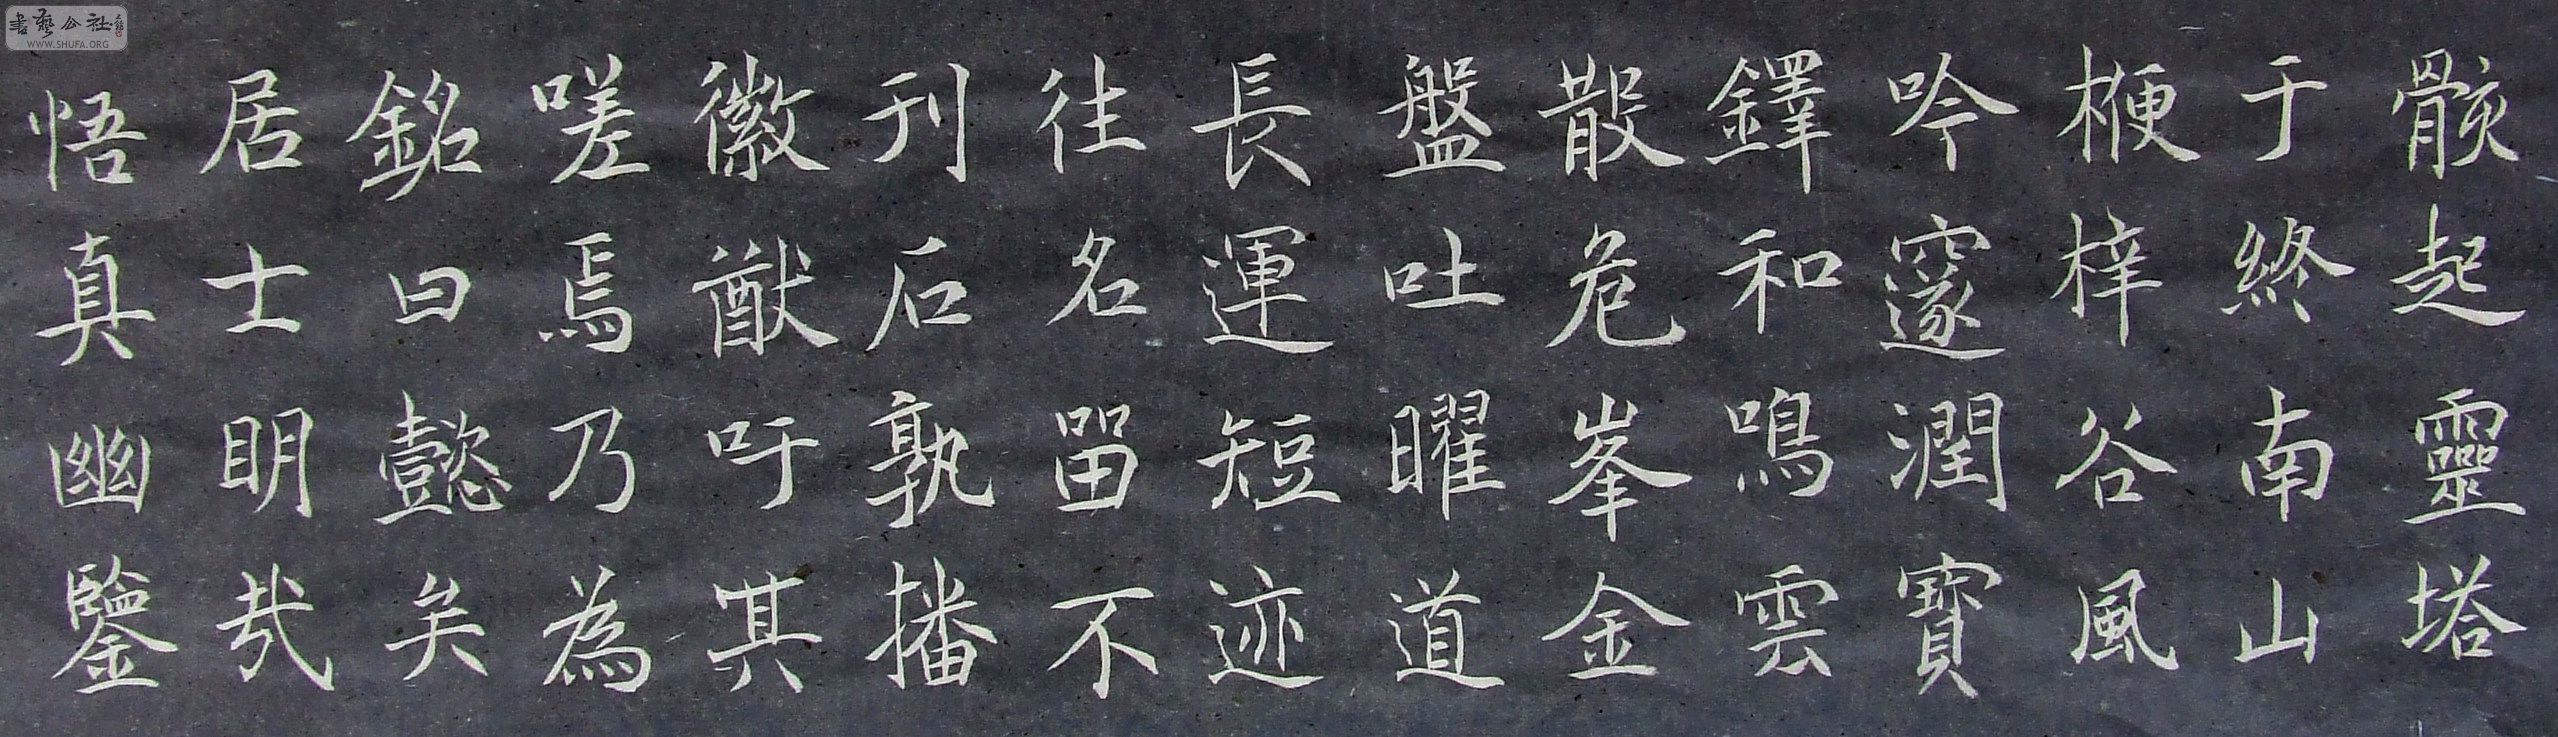 骸起靈塔
于終南山
楩梓谷風
吟邃澗寶
鐸和鳴雲
散危峯金
盤吐曜道
長運短迹
往名留不
刊石孰播
徽猷吁其
嗟焉乃為
銘曰懿矣
居士明哉
悟真幽鑒
書藝公社
WWW.SHUFA.ORG